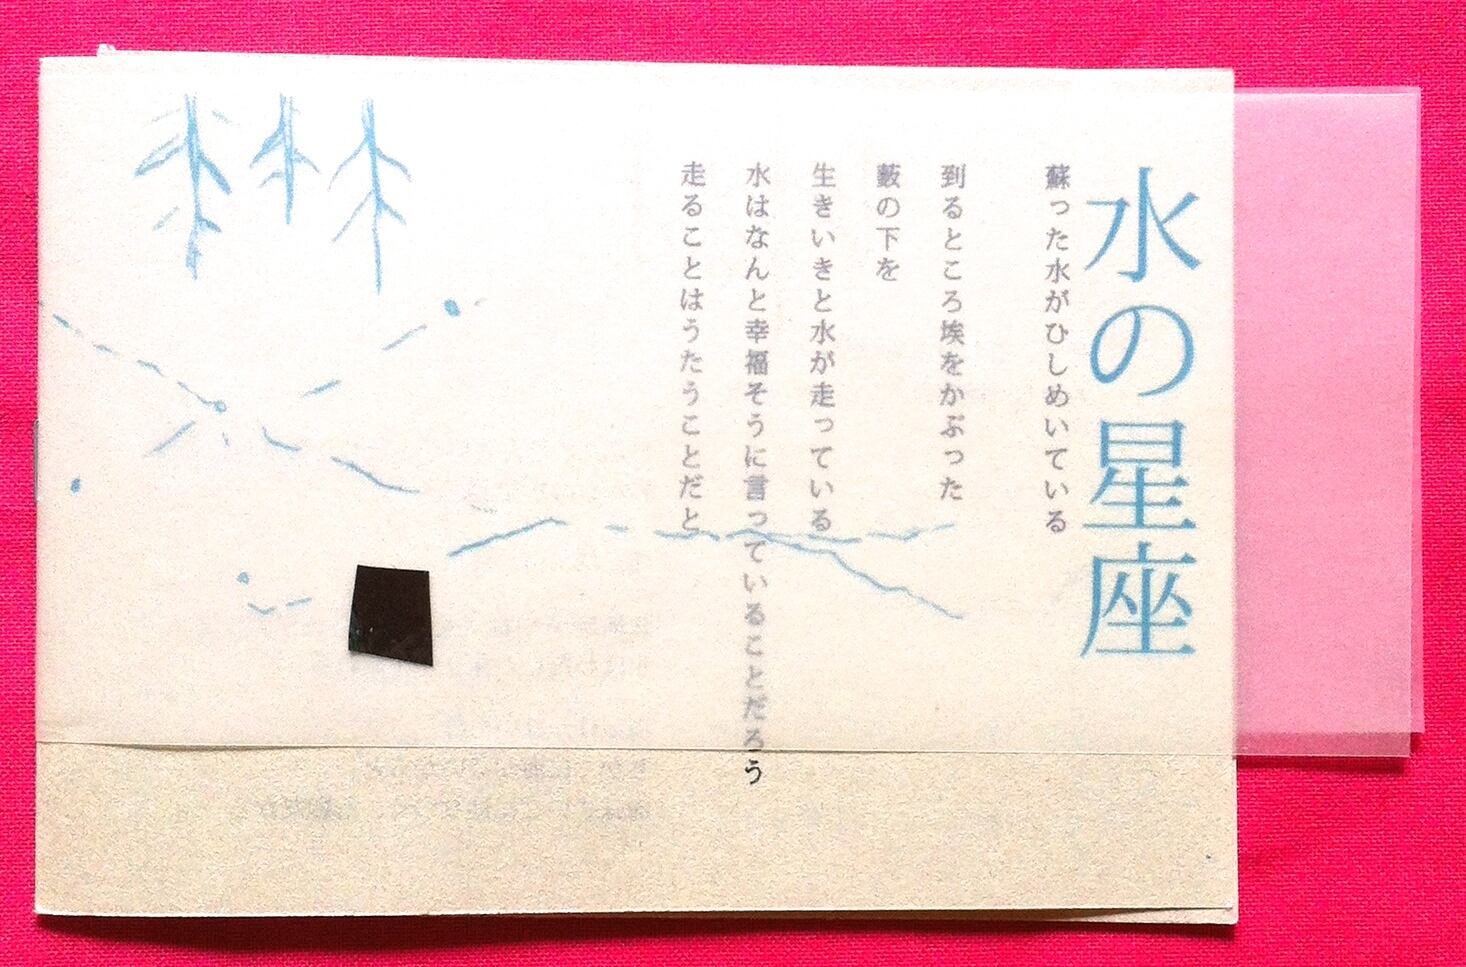 水の星座
蘇った水がひしめいている
到るところ埃をかぶった
藪の下を
生きいきと水が走っている
水はなんと幸福そうに言っていることだろう
走ることはうたうことだと